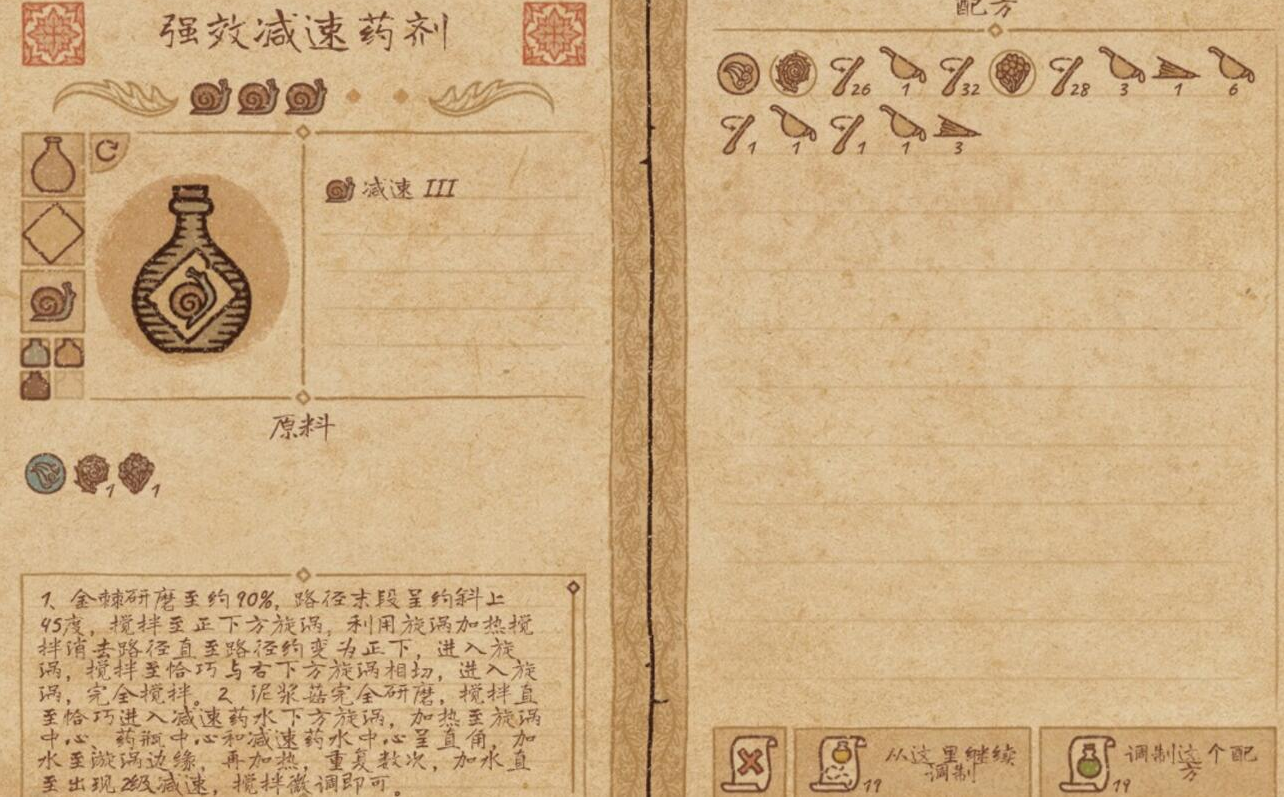 强效减速药剂
减速 III
原料
1
1
1、金棘研磨至约90%，路径末段呈约斜上
45度，搅拌至正下方旋涡，利用旋涡加热搅
拌消去路径直至路径约变为正下，进入旋
涡，搅拌至恰巧与右下方旋涡相切，进入旋
涡，完全搅拌。2、泥浆菇完全研磨，搅拌直
至恰巧进入减速药水下方旋涡，加热至旋涡
中心，药瓶中心和减速药水中心呈直角，加
水至漩涡边缘，再加热，重复数次，加水直
至出现2级减速，搅拌微调即可。
配方
26 1 32 28 3 1 6
1 1 1 1 3
19
从这里继续
调制
19
调制这个配
方